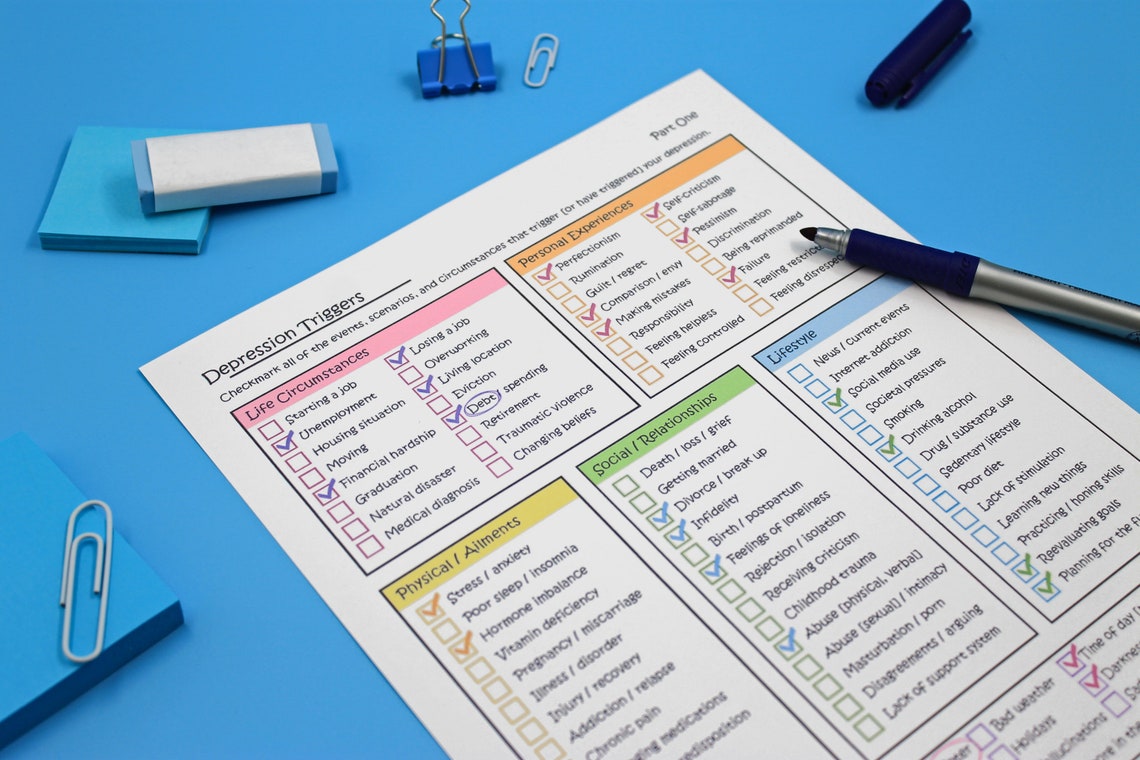 Part One
Depression Triggers
Checkmark all of the events, scenarios, and circumstances that trigger [or have triggered] your depression.
Life Circumstances
Starting a job
Unemployment
Housing situation
Moving
Financial hardship
Graduation
Natural disaster
Medical diagnosis
Losing a job
Overworking
Living location
Eviction
Debt / spending
Retirement
Traumatic violence
Changing beliefs
Personal Experiences
Perfectionism
Rumination
Guilt / regret
Comparison / envy
Making mistakes
Responsibility
Feeling helpless
Feeling controlled
Self-criticism
Self-sabotage
Pessimism
Discrimination
Being reprimanded
Failure
Feeling
Feeling
Physical / Ailments
Stress / anxiety
Poor sleep / insomnia
Hormone imbalance
Vitamin deficiency
Pregnancy / miscarriage
Illness / disorder
Injury / recovery
Addiction / relapse
Chronic pain
medications
Social / Relationships
Death / loss / grief
Getting married
Divorce / break up
Infidelity
Birth / postpartum
Feelings of loneliness
Rejection / isolation
Receiving criticism
Childhood trauma
Abuse [physical, verbal]
Abuse [sexual] / intimacy
Masturbation / porn
Disagreements / arguing
Lack of support system
Lifestyle
News / Current events
Internet addiction
Social media use
Societal pressures
Smoking
Drinking alcohol
Drug / substance use
Sedentary lifestyle
Poor diet
Lack of stimulation
Learning new things
Practicing / honing skills
Reevaluating goals
Planning for the
Bad weather
Holidays
Time of day